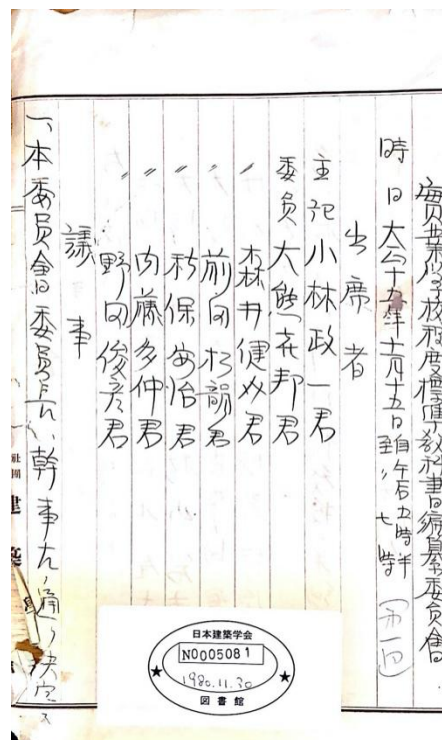 實業學校程度標準教科書編纂委員會
(第一回)
時日 大正十五年十一月十五日 自午后五時半 至〃七時
出席者
主記 小林政一君
委員 大熊喜邦君
〃 森井健介君
〃 前田松韻君
〃 秋保安治君
〃 内藤多仲君
〃 野田俊彦君
議事
一、本委員會委員長、幹事左ノ通リ決定ス
社團
建築
日本建築学会
N0005081
1980.11.30
図書館